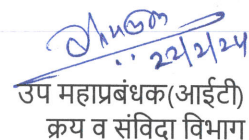 22/2/24
उप महाप्रबंधक(आईटी)
क्रय व संविदा विभाग